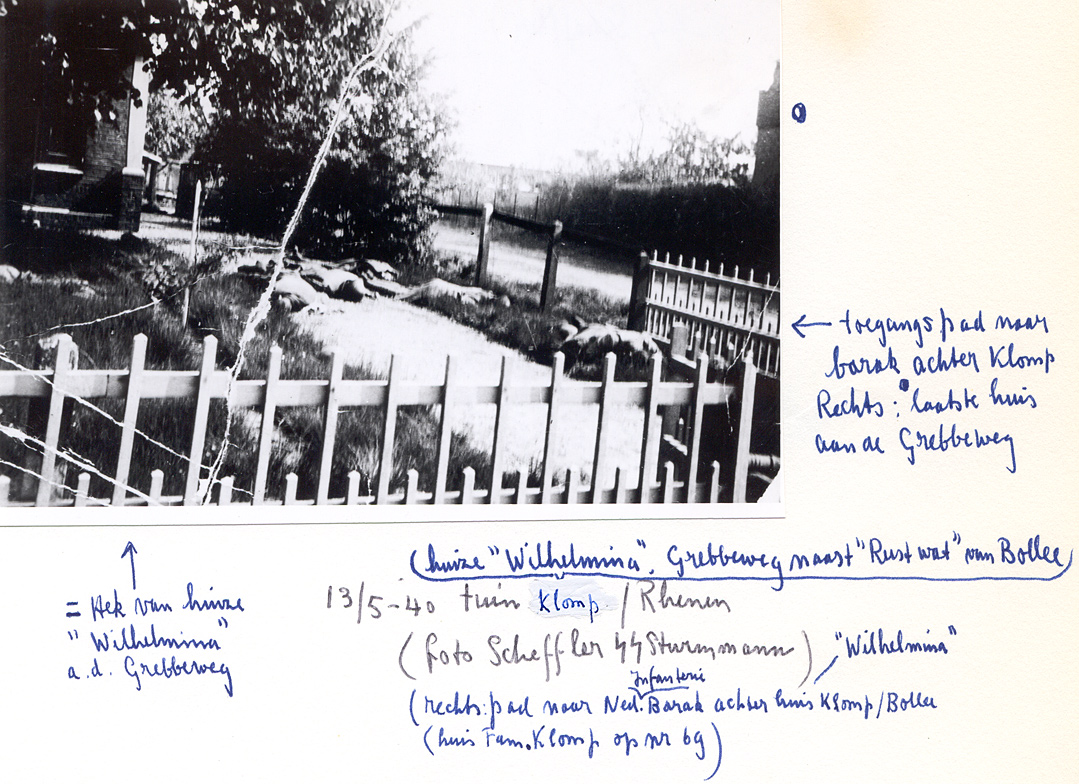 ← toegangspad naar
barak achter Klomp
Rechts: laatste huis
aan de Grebbeweg
= Hek van huize
"Wilhelmina"
a.d. Grebbeweg
(huize "Wilhelmina". Grebbeweg naast "Rust wat" van Bollee)
13/5-40 tuin Klomp / Rhenen
(foto Scheffler SS Sturmmann) "Wilhelmina"
Infanterie
(rechts: pad naar Ned. Barak achter huis Klomp/Bollee
(huis Fam. Klomp op nr 69)